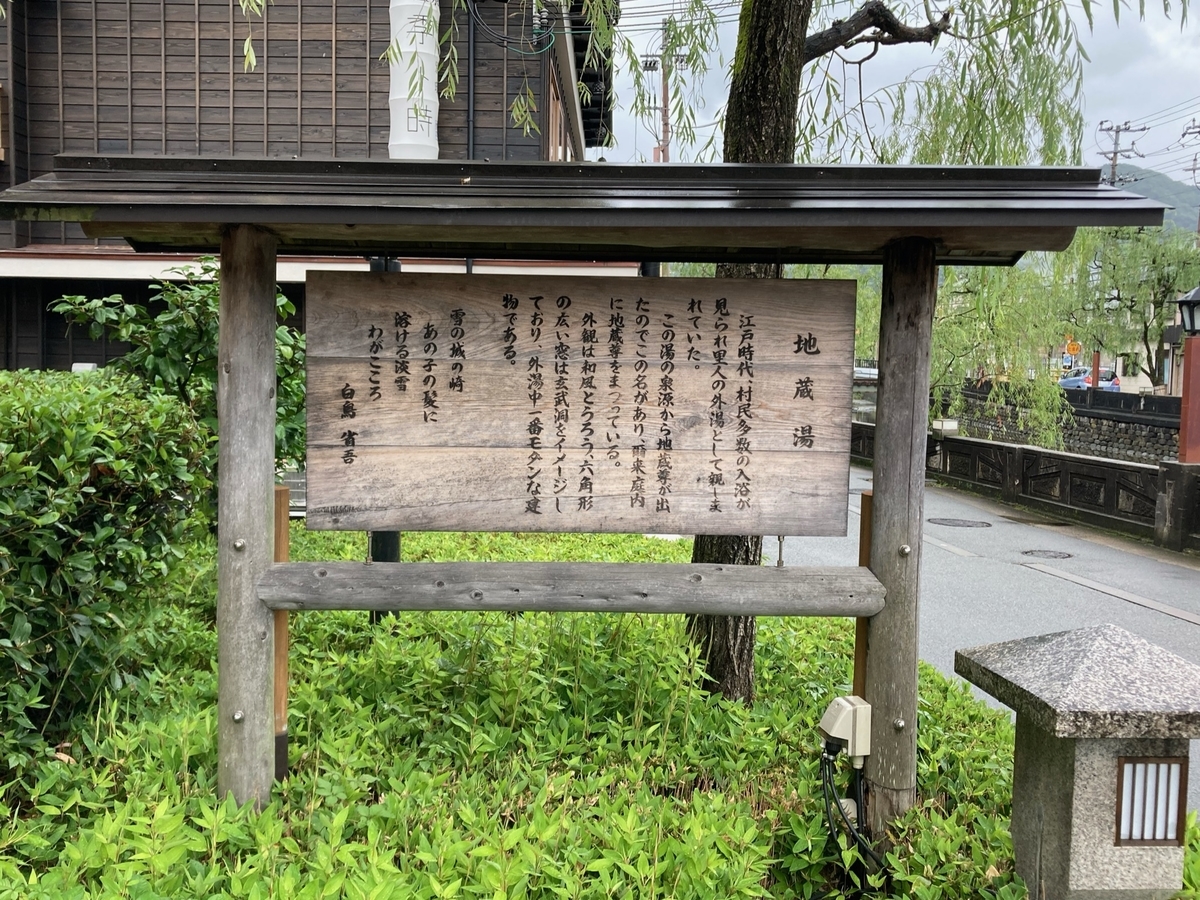 地蔵湯
江戸時代、村民多数の入浴が
見られ里人の外湯として親しま
れていた。
この湯の泉源から地蔵尊が出
たのでこの名があり、爾来庭内
に地蔵尊をまつっている。
外観は和風とうろう、六角形
の広い窓は玄武洞をイメージし
ており、外湯中一番モダンな建
物である。
雪の城の崎
あの子の髪に
溶ける淡雪
わがこころ
白鳥省吾